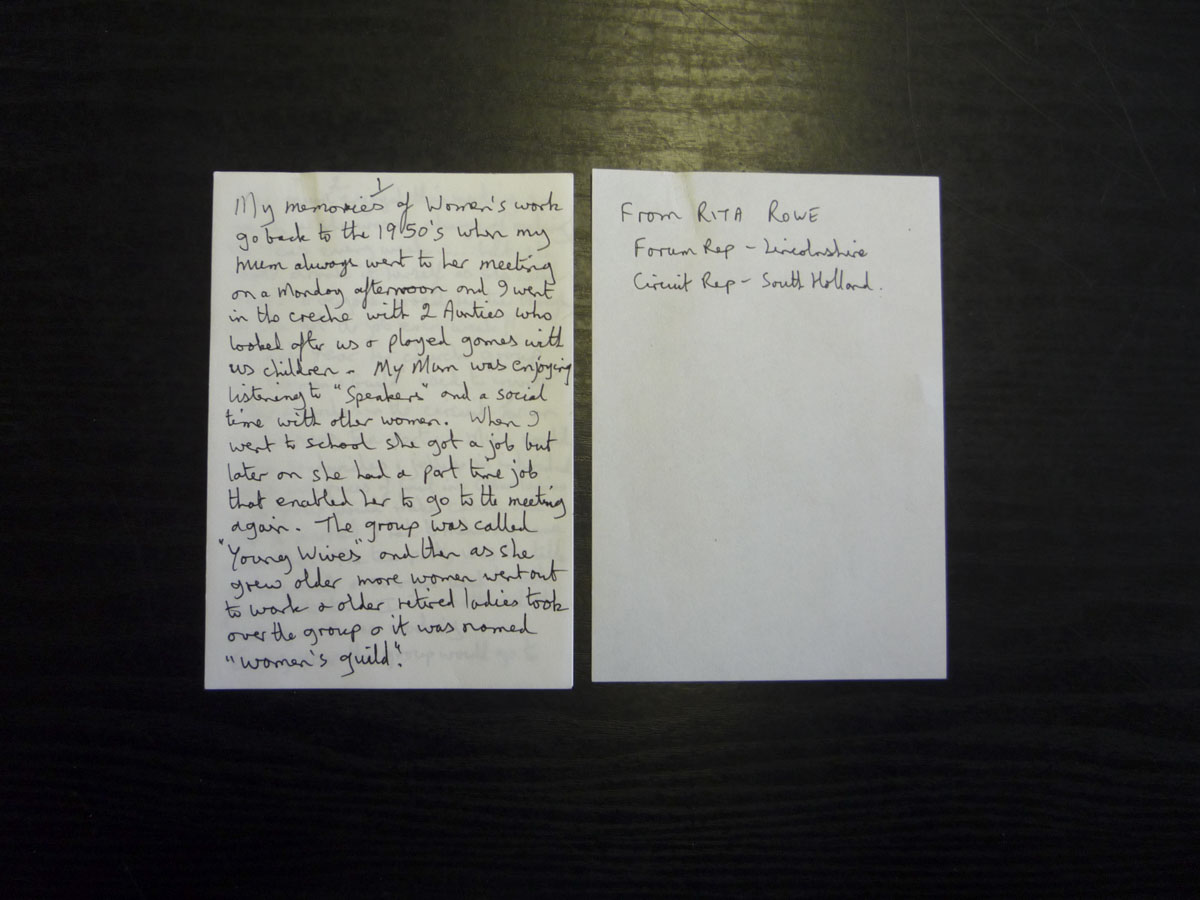 1
My memories of Women's work
go back to the 1950's when my
mum always went to her meeting
on a Monday afternoon and I went
in the creche with 2 Aunties who
looked after us & played games with
us children - My Mum was enjoying
listening to "Speakers" and a social
time with other women. When I
went to school she got a job but
later on she had a part time job
that enabled her to go to the meeting
again. The group was called
"Young Wives" and then as she
grew older more women went out
to work & older retired ladies took
over the group & it was named
"women's guild".
From RITA ROWE
Forum Rep - Lincolnshire
Circuit Rep - South Holland.